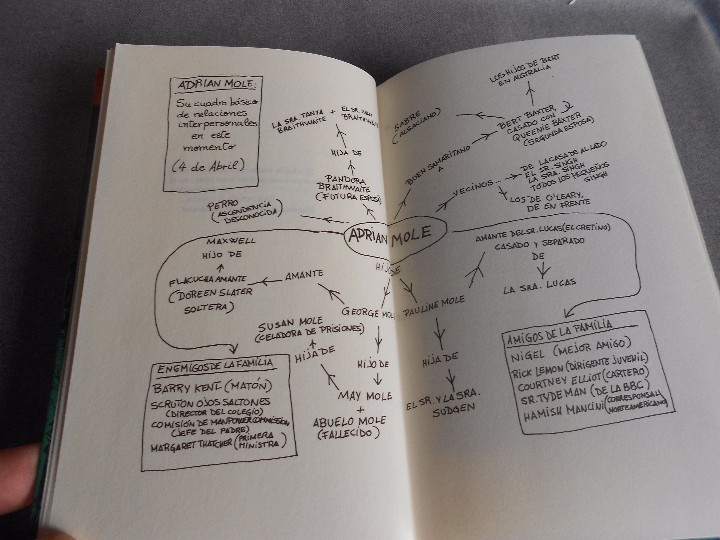 ADRIAN MOLE:
Su cuadro básico
de relaciones
interpersonales
en este
momento
(4 de Abril)
LA SRA. TANYA + EL SR.
BRAITHWAITE BRAITHWAITE
HIJA DE
PANDORA
BRAITHWAITE
(FUTURA ESPOSA)
PERRO
(ASCENDENCIA
DESCONOCIDA)
ADRIAN MOLE
MAXWELL
HIJO DE
FLACUCHA AMANTE
(DOREEN SLATER
SOLTERA)
AMANTE
HIJO DE
GEORGE MOLE
SUSAN MOLE
(CELADORA DE PRISIONES)
HIJA DE
HIJO DE
MAY MOLE
+
ABUELO MOLE
(FALLECIDO)
ENEMIGOS DE LA FAMILIA
BARRY KENT (MATÓN)
SCRUTON OJOS SALTONES
(DIRECTOR DEL COLEGIO)
COMISIÓN DE MANPOWER COMMISSION
(JEFE DEL PADRE)
MARGARET THATCHER (PRIMERA
MINISTRA)
LOS HIJOS DE BERT
EN AUSTRALIA
SABRE
(ALSACIANO)
BERT BAXTER,
CASADO CON
QUEENIE BAXTER
(SEGUNDA ESPOSA)
BUEN SAMARITANO
A
VECINOS
DE LA CASA DE AL LADO
EL SR. SINGH
LA SRA. SINGH
TODOS LOS PEQUEÑOS
SINGH
LOS DE O'LEARY,
DE EN FRENTE
AMANTE DEL SR. LUCAS (EL CRETINO)
CASADO Y SEPARADO
DE
LA SRA. LUCAS
PAULINE MOLE
HIJA DE
EL SR. Y LA SRA.
SUGDEN
AMIGOS DE LA FAMILIA
NIGEL (MEJOR AMIGO)
RICK LEMON (DIRIGENTE JUVENIL)
COURTNEY ELLIOT (CARTERO)
SR. TYDEMAN (DE LA BBC)
HAMISH MANCINI (CORRESPONSAL
NORTEAMERICANO)